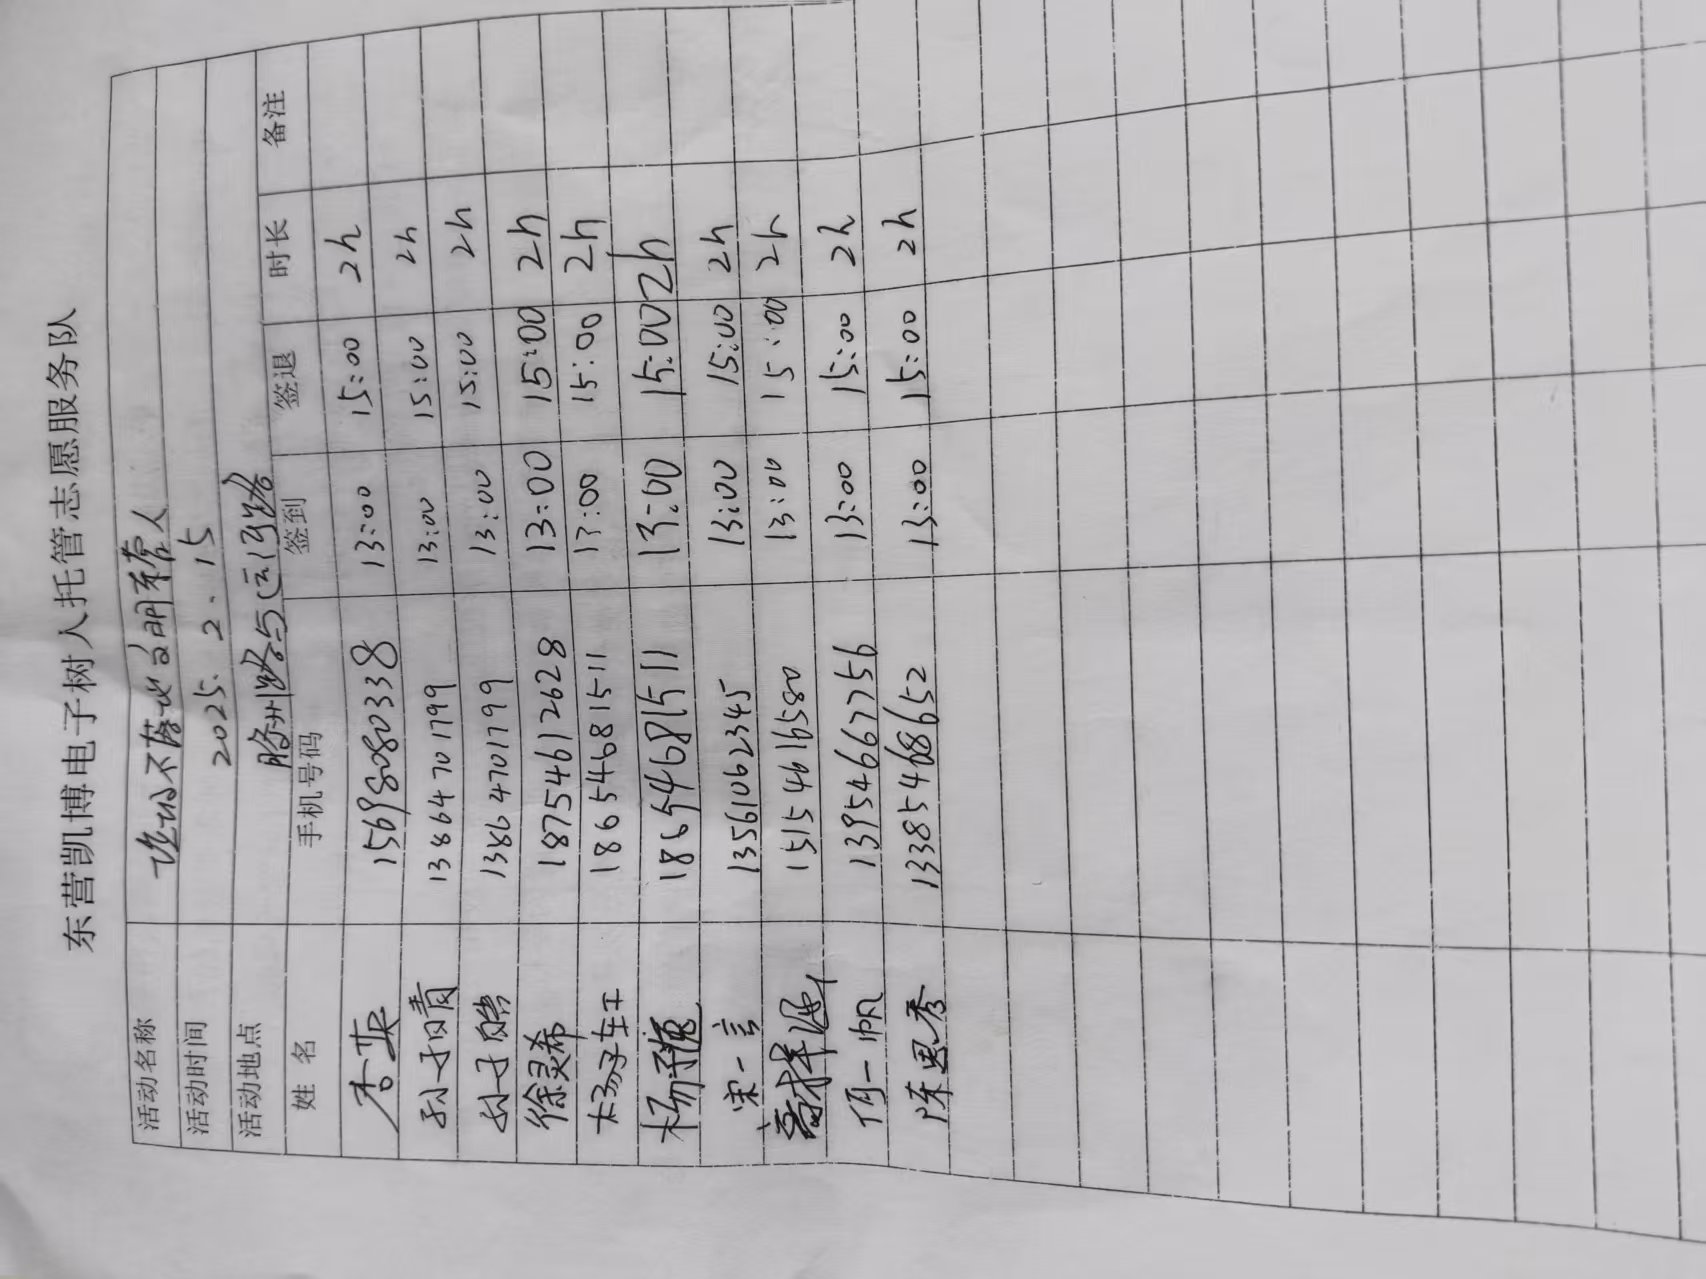 东营凯博电子树人托管志愿服务队
活动名称 垃圾不落地 文明东营人
活动时间 2025.2.15
活动地点 胶州路与运河路
姓名 手机号码 签到 签退 时长 备注
杏英 15698080338 13:00 15:00 2h
孙子晴 13864701799 13:00 15:00 2h
孙子腾 13864701799 13:00 15:00 2h
徐灵希 18754612628 13:00 15:00 2h
杨子轩 18654681511 13:00 15:00 2h
杨 18654681511 13:00 15:00 2h
宋一言 13561062345 13:00 15:00 2h
15154616580 13:00 15:00 2h
何一帆 13954667756 13:00 15:00 2h
陈思秀 13385468652 13:00 15:00 2h